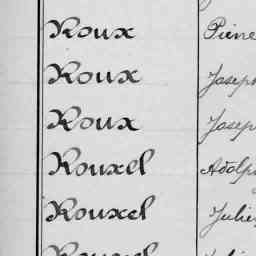 Roux Pierre
Roux Joseph
Roux Joseph
Rouxel Adolph
Rouxel Julien
Rouxel